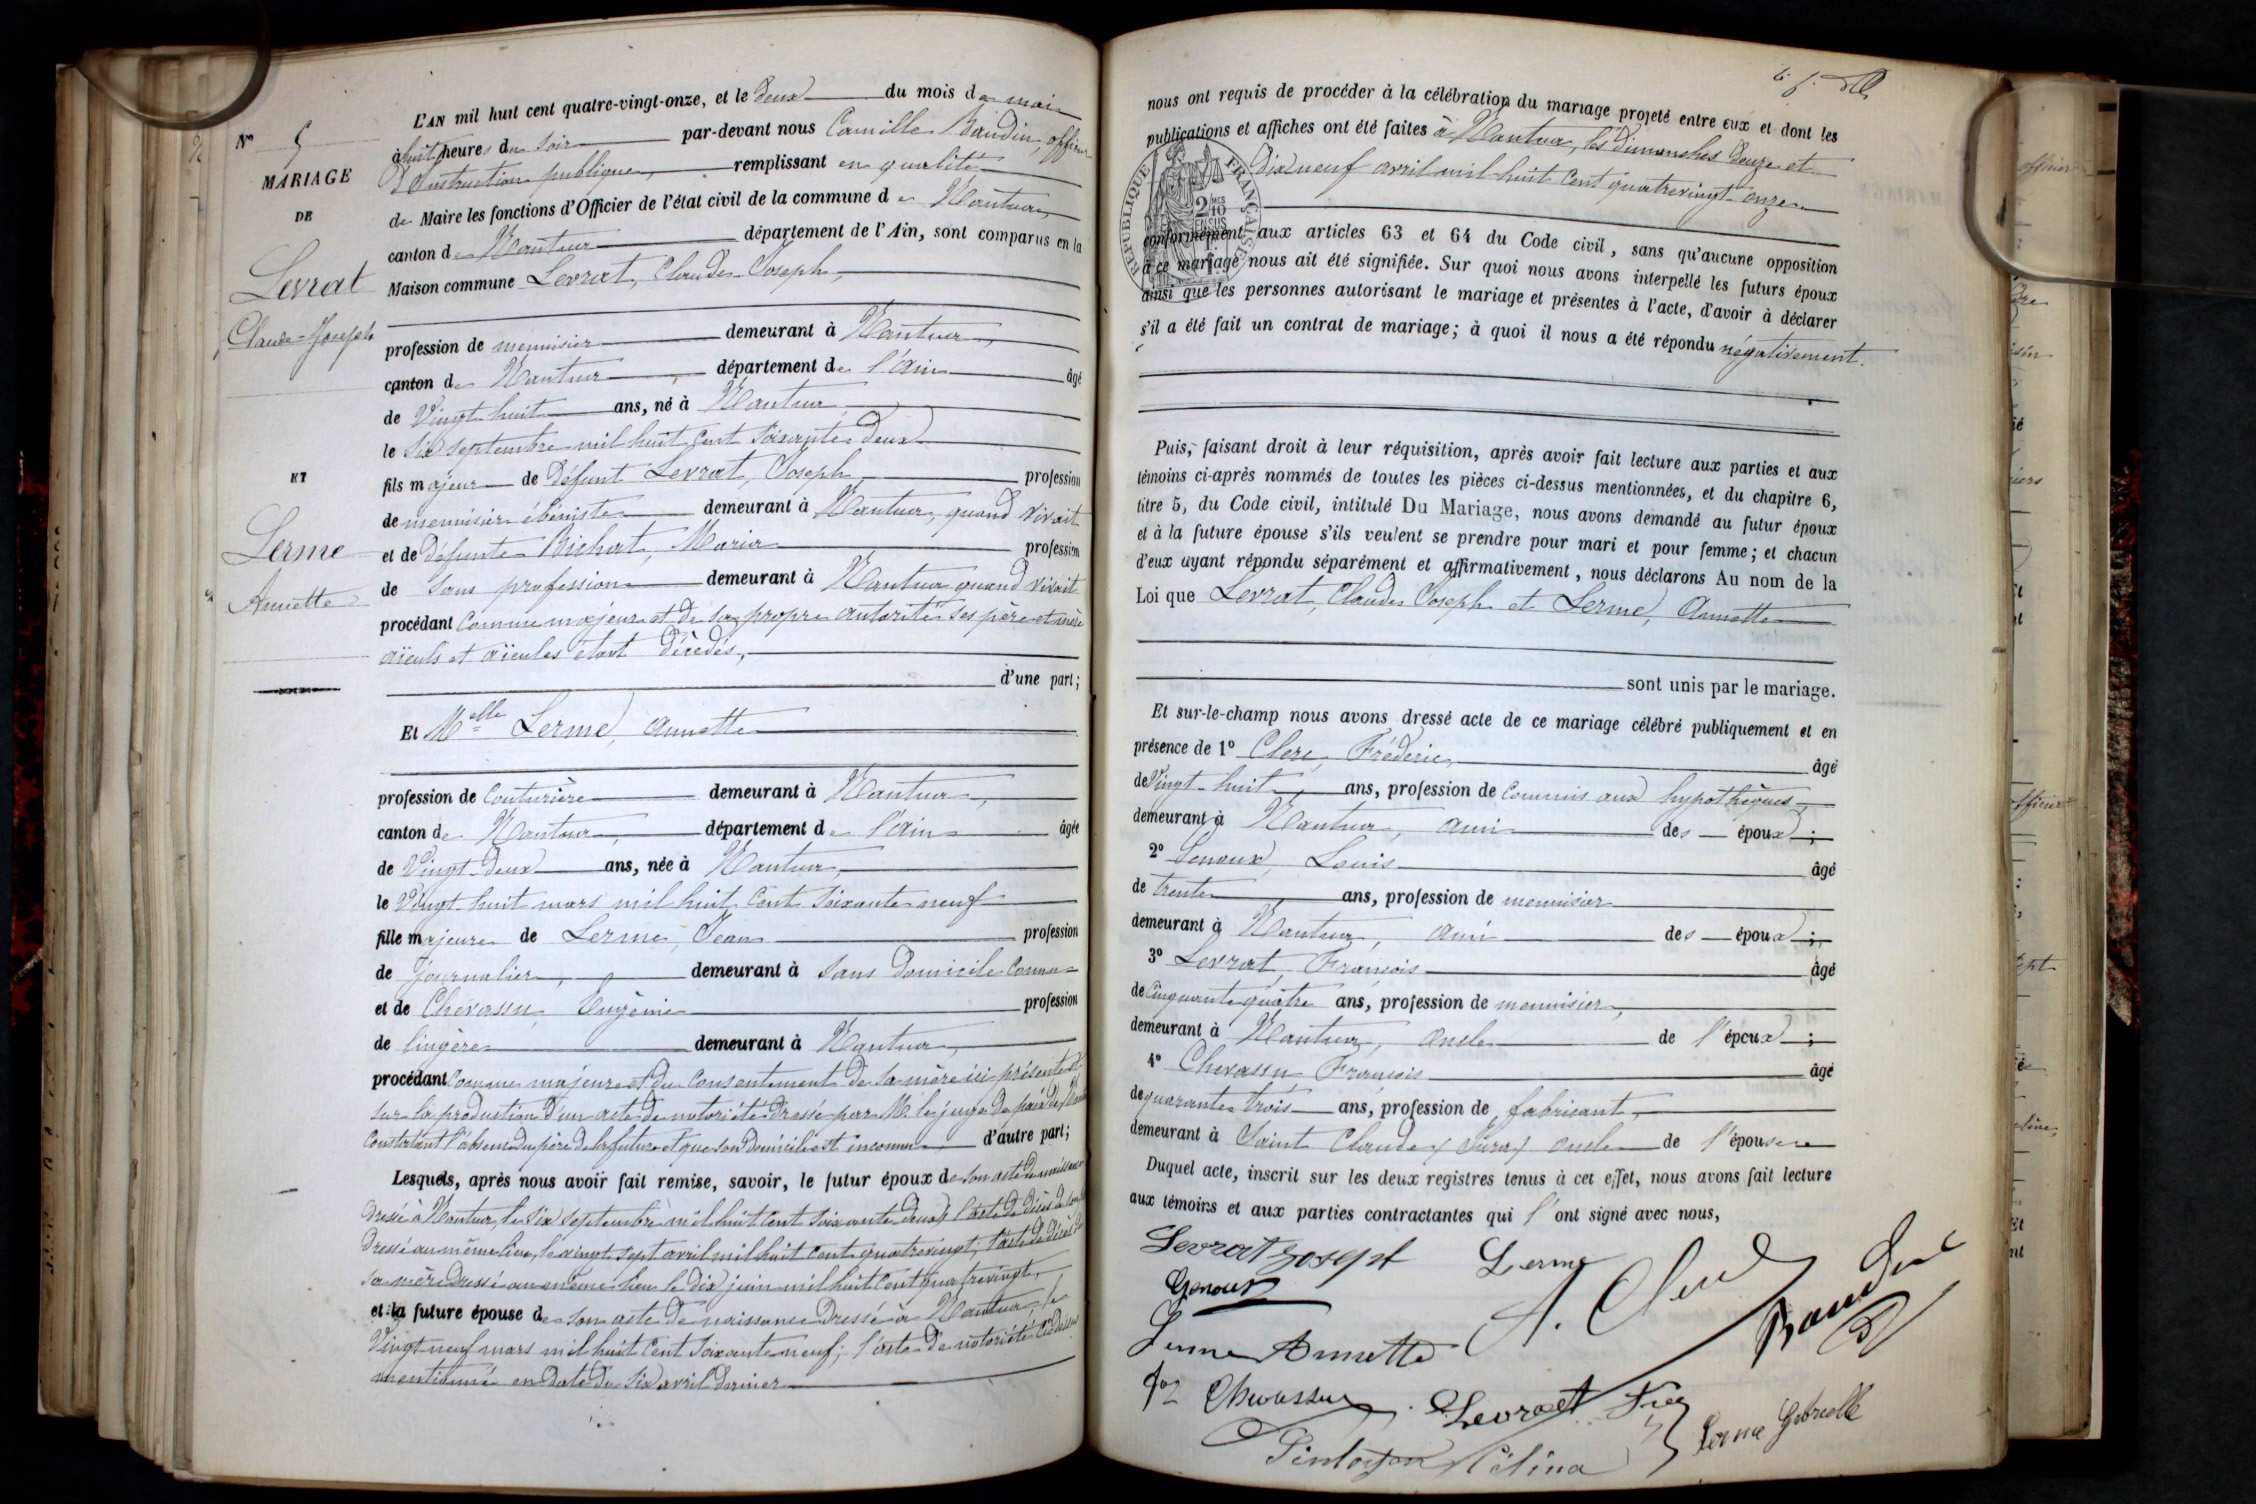 N° 5
MARIAGE
DE
Levrat
Claude-Joseph
ET
Lerme
Annette
L'AN mil huit cent quatre-vingt-onze, et le deux du mois de mai
à huit heures du soir par-devant nous Camille Baudin, officier
d'Instruction publique, remplissant en qualité
de Maire les fonctions d'Officier de l'état civil de la commune de Nantua,
canton de Nantua département de l'Ain, sont comparus en la
Maison commune Levrat, Claude Joseph,
profession de menuisier demeurant à Nantua,
canton de Nantua, département de l'Ain âgé
de Vingt huit ans, né à Nantua,
le six septembre mil huit cent soixante deux
fils majeur de défunt Levrat, Joseph profession
de menuisier ébéniste demeurant à Nantua, quand vivait
et de défunte Bichat, Maria profession
de sans profession demeurant à Nantua quand vivait
procédant comme majeur et de sa propre autorité ses père et mère
aïeuls et aïeules étant décédés,
d'une part;
Et Melle Lerme, Annette
profession de couturière demeurant à Nantua,
canton de Nantua, département de l'Ain âgée
de Vingt-deux ans, née à Nantua,
le Vingt-huit mars mil huit cent soixante neuf
fille majeure de Lerme, Jean profession
de journalier, demeurant à sans domicile connu
et de Chevassu, Eugénie profession
de lingère demeurant à Nantua,
procédant comme majeure et du consentement de sa mère ici présente et
sur la production d'un acte de notoriété dressé par M. le juge de paix de
constatant l'absence du père de la future et que son domicile est inconnu d'autre part;
Lesquels, après nous avoir fait remise, savoir, le futur époux de son acte de naissance
dressé à Nantua, le six septembre mil huit cent soixante deux; l'acte de décès de
dressé au même lieu, le vingt sept avril mil huit cent quatrevingt, l'acte de décès de
sa mère dressé au même lieu le dix juin mil huit cent quatrevingt,
et la future épouse de son acte de naissance dressé à Nantua, le
Vingt neuf mars mil huit cent soixante neuf; l'acte de notoriété ci-dessus
mentionné en date du six avril dernier
nous ont requis de procéder à la célébration du mariage projeté entre eux et dont les
publications et affiches ont été faites à Nantua, les dimanches douze et
dix neuf avril mil huit cent quatrevingt-onze
RÉPUBLIQUE FRANÇAISE
conformément aux articles 63 et 64 du Code civil, sans qu'aucune opposition
à ce mariage nous ait été signifiée. Sur quoi nous avons interpellé les futurs époux
ainsi que les personnes autorisant le mariage et présentes à l'acte, d'avoir à déclarer
s'il a été fait un contrat de mariage; à quoi il nous a été répondu négativement.
Puis, faisant droit à leur réquisition, après avoir fait lecture aux parties et aux
témoins ci-après nommés de toutes les pièces ci-dessus mentionnées, et du chapitre 6,
titre 5, du Code civil, intitulé Du Mariage, nous avons demandé au futur époux
et à la future épouse s'ils veulent se prendre pour mari et pour femme; et chacun
d'eux ayant répondu séparément et affirmativement, nous déclarons Au nom de la
Loi que Levrat, Claude Joseph et Lerme, Annette
sont unis par le mariage.
Et sur-le-champ nous avons dressé acte de ce mariage célébré publiquement et en
présence de 1° Clerc, Fréderic, âgé
de Vingt-huit ans, profession de commis aux hypothèques,
demeurant à Nantua, ami des époux;
2° Genoux, Louis âgé
de trente ans, profession de menuisier
demeurant à Nantua, ami des époux;
3° Levrat, François âgé
de cinquante quatre ans, profession de menuisier,
demeurant à Nantua, oncle de l'époux;
4° Chevassu François âgé
de quarante trois ans, profession de fabricant,
demeurant à Saint Claude (Jura) oncle de l'épouse
Duquel acte, inscrit sur les deux registres tenus à cet effet, nous avons fait lecture
aux témoins et aux parties contractantes qui l'ont signé avec nous,
Levrat Joseph
Lerme
Genoux
Lerme Annette
Baudin
Chevassu
Levrat
Célina
Lerme Gabrielle